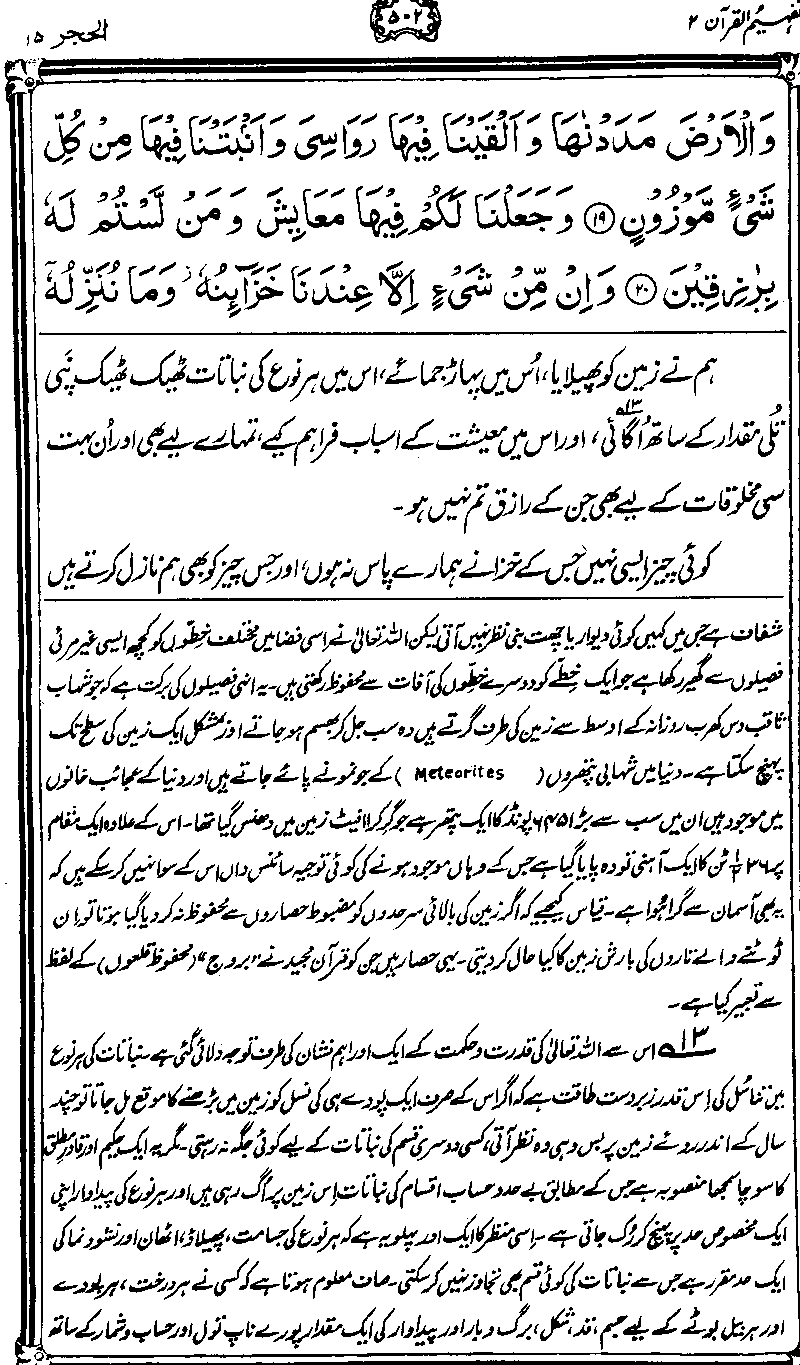 تفہیم القرآن ۲
۵۰۲
الحجر ۱۵
وَالْاَرْضَ مَدَدْنٰهَا وَاَلْقَيْنَا فِيْهَا رَوَاسِىَ وَاَنْۢبَتْنَا فِيْهَا مِنْ كُلِّ
شَىْءٍ مَّوْزُوْنٍ ⑲ وَجَعَلْنَا لَكُمْ فِيْهَا مَعَايِشَ وَمَنْ لَّسْتُمْ لَهٗ
بِرٰزِقِيْنَ ⑳ وَاِنْ مِّنْ شَىْءٍ اِلَّا عِنْدَنَا خَزَآئِنُهٗ وَمَا نُنَزِّلُهٗٓ
ہم نے زمین کو پھیلایا، اُس میں پہاڑ جمائے، اس میں ہر نوع کی نباتات ٹھیک ٹھیک نپی
تُلی مقدار کے ساتھ اُگائی۱۳ ، اور اس میں معیشت کے اسباب فراہم کیے، تمہارے لیے بھی اور اُن بہت
سی مخلوقات کے لیے بھی جن کے رازق تم نہیں ہو۔
کوئی چیز ایسی نہیں جس کے خزانے ہمارے پاس نہ ہوں، اور جس چیز کو بھی ہم نازل کرتے ہیں
شفاف ہے جس میں کہیں کوئی دیوار یا چھت بنی نظر نہیں آتی لیکن اللہ تعالیٰ نے اسی فضا میں مختلف خطّوں کو کچھ ایسی غیر مرئی
فصیلوں سے گھیر رکھا ہے جو ایک خِطّے کو دوسرے خطّوں کی آفات سے محفوظ رکھتی ہیں۔ یہ انہی فصیلوں کی برکت ہے کہ جو شہاب
ثاقب دس کھرب روزانہ کے اوسط سے زمین کی طرف گرتے ہیں وہ سب جل کر بھسم ہو جاتے اور بمشکل ایک زمین کی سطح تک
پہنچ سکتا ہے۔ دنیا میں شہابی پتھروں ( Meteorites ) کے جو نمونے پائے جاتے ہیں اور دنیا کے عجائب خانوں
میں موجود ہیں ان میں سب سے بڑا ۶۴۵ پونڈ کا ایک پتھر ہے جو گر کر ۱۱ فیٹ زمین میں دھنس گیا تھا۔ اس کے علاوہ ایک مقام
پر ۳۶½ ٹن کا ایک آہنی تودہ پایا گیا ہے جس کے وہاں موجود ہونے کی کوئی توجیہ سائنس داں اس کے سوا نہیں کر سکے ہیں کہ
یہ بھی آسمان سے گرا ہوا ہے۔ قیاس کیجیے کہ اگر زمین کی بالائی سرحدوں کو مضبوط حصاروں سے محفوظ نہ کر دیا گیا ہوتا تو ان
ٹوٹنے والے تاروں کی بارش زمین کا کیا حال کر دیتی۔ یہی حصار ہیں جن کو قرآن مجید نے ”بروج“ (محفوظ قلعوں) کے لفظ
سے تعبیر کیا ہے۔
۱۳ اس سے اللہ تعالیٰ کی قدرت و حکمت کے ایک اور اہم نشان کی طرف توجہ دلائی گئی ہے۔ نباتات کی ہر نوع
میں تناسُل کی اِس قدر زبردست طاقت ہے کہ اگر اس کے صرف ایک پودے ہی کی نسل کو زمین میں بڑھنے کا موقع مل جاتا تو چند
سال کے اندر روئے زمین پر بس وہی وہ نظر آتی، کسی دوسری قسم کی نباتات کے لیے کوئی جگہ نہ رہتی۔ مگر یہ ایک حکیم اور قادرِ مطلق
کا سوچا سمجھا منصوبہ ہے جس کے مطابق بے حد و حساب اقسام کی نباتات اِس زمین پر اُگ رہی ہیں اور ہر نوع کی پیداوار اپنی
ایک مخصوص حد پر پہنچ کر رُک جاتی ہے۔ اِسی منظر کا ایک اور پہلو یہ ہے کہ ہر نوع کی جسامت، پھیلاؤ، اٹھان اور نشوونما کی
ایک حد مقرر ہے جس سے نباتات کی کوئی قسم بھی تجاوز نہیں کر سکتی۔ صاف معلوم ہوتا ہے کہ کسی نے ہر درخت، ہر پودے
اور ہر بیل بوٹے کے لیے جسم، قد، شکل، برگ و بار اور پیداوار کی ایک مقدار پورے ناپ تول اور حساب و شمار کے ساتھ